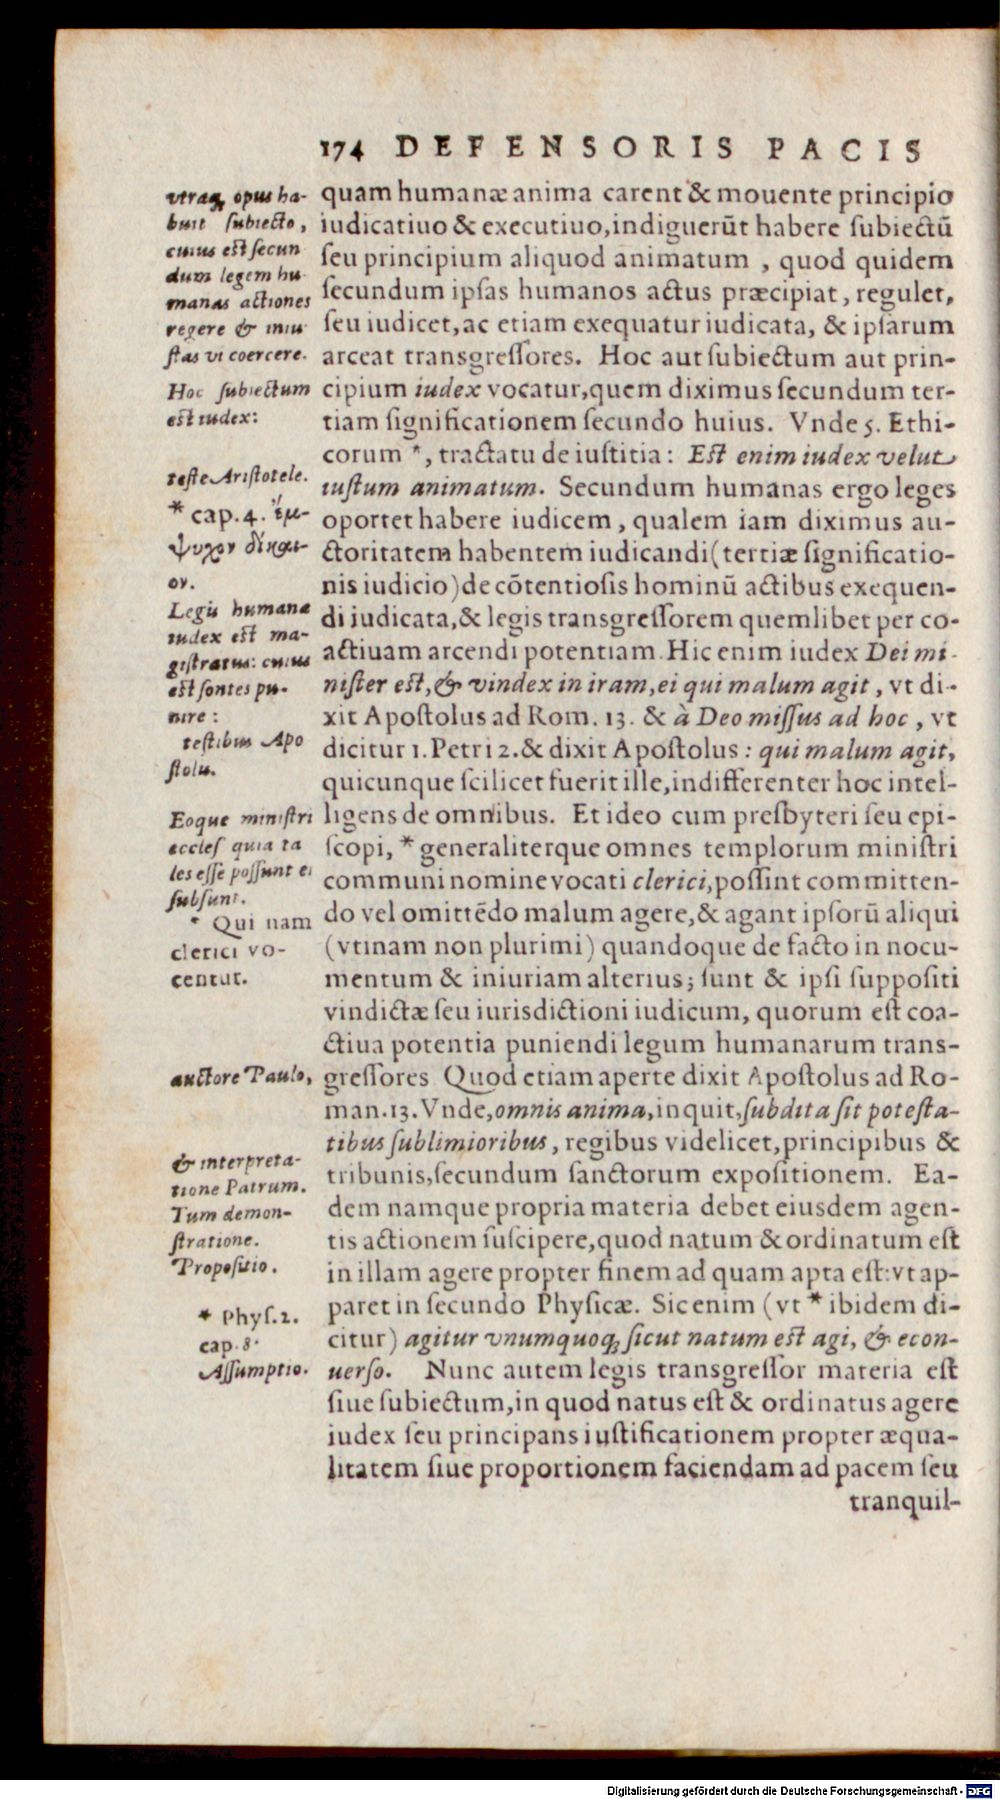 174 DEFENSORIS PACIS
vtraq, opus ha-
buit subiecto,
cuius est secun
dum legem hu
manas actiones
regere & iniu
stas vi coercere.
Hoc subiectum
est iudex:
teste Aristotele.
* cap. 4. ἔμ-
ψυχον δίκαι-
ον.
Legis humanæ
iudex est ma-
gistratus: cuius
est sontes pu-
nire:
testibus Apo
stolis.
Eoque ministri
eccles quia ta
les esse possunt ei
subsunt.
* Qui nam
clerici vo-
centur.
auctore Paulo,
& interpreta-
tione Patrum.
Tum demon-
stratione.
Propositio.
* Phys. 2.
cap. 8.
Assumptio.
quam humanæ anima carent & mouente principio
iudicatiuo & executiuo, indiguerūt habere ſubiectū
ſeu principium aliquod animatum , quod quidem
ſecundum ipſas humanos actus præcipiat, regulet,
ſeu iudicet, ac etiam exequatur iudicata, & ipſarum
arceat transgreſſores. Hoc aut ſubiectum aut prin-
cipium iudex vocatur, quem diximus ſecundum ter-
tiam ſignificationem ſecundo huius. Vnde 5. Ethi-
corum *, tractatu de iuſtitia: Eſt enim iudex velut
iuſtum animatum. Secundum humanas ergo leges
oportet habere iudicem , qualem iam diximus au-
ctoritatem habentem iudicandi (tertiæ ſignificatio-
nis iudicio) de cōtentioſis hominū actibus exequen-
di iudicata, & legis transgreſſorem quemlibet per co-
actiuam arcendi potentiam. Hic enim iudex Dei mi-
niſter eſt, & vindex in iram, ei qui malum agit, vt di-
xit Apoſtolus ad Rom. 13. & à Deo miſſus ad hoc, vt
dicitur 1. Petri 2. & dixit Apoſtolus: qui malum agit,
quicunque ſcilicet fuerit ille, indifferenter hoc intel-
ligens de omnibus. Et ideo cum presbyteri ſeu epi-
ſcopi, * generaliterque omnes templorum miniſtri
communi nomine vocati clerici, poſſint committen-
do vel omittēdo malum agere, & agant ipſorū aliqui
(vtinam non plurimi) quandoque de facto in nocu-
mentum & iniuriam alterius; ſunt & ipſi ſuppoſiti
vindictæ ſeu iurisdictioni iudicum, quorum eſt coa-
ctiua potentia puniendi legum humanarum trans-
greſſores Quod etiam aperte dixit Apoſtolus ad Ro-
man. 13. Vnde, omnis anima, inquit, ſubdita ſit poteſta-
tibus ſublimioribus, regibus videlicet, principibus &
tribunis, ſecundum ſanctorum expoſitionem. Ea-
dem namque propria materia debet eiusdem agen-
tis actionem ſuſcipere, quod natum & ordinatum eſt
in illam agere propter finem ad quam apta eſt: vt ap-
paret in ſecundo Phyſicæ. Sic enim (vt * ibidem di-
citur) agitur vnumquoq; ſicut natum eſt agi, & econ-
uerſo. Nunc autem legis transgreſſor materia eſt
ſiue ſubiectum, in quod natus eſt & ordinatus agere
iudex ſeu principans iuſtificationem propter æqua-
litatem ſiue proportionem faciendam ad pacem ſeu
tranquil-
Digitalisierung gefördert durch die Deutsche Forschungsgemeinschaft - DFG